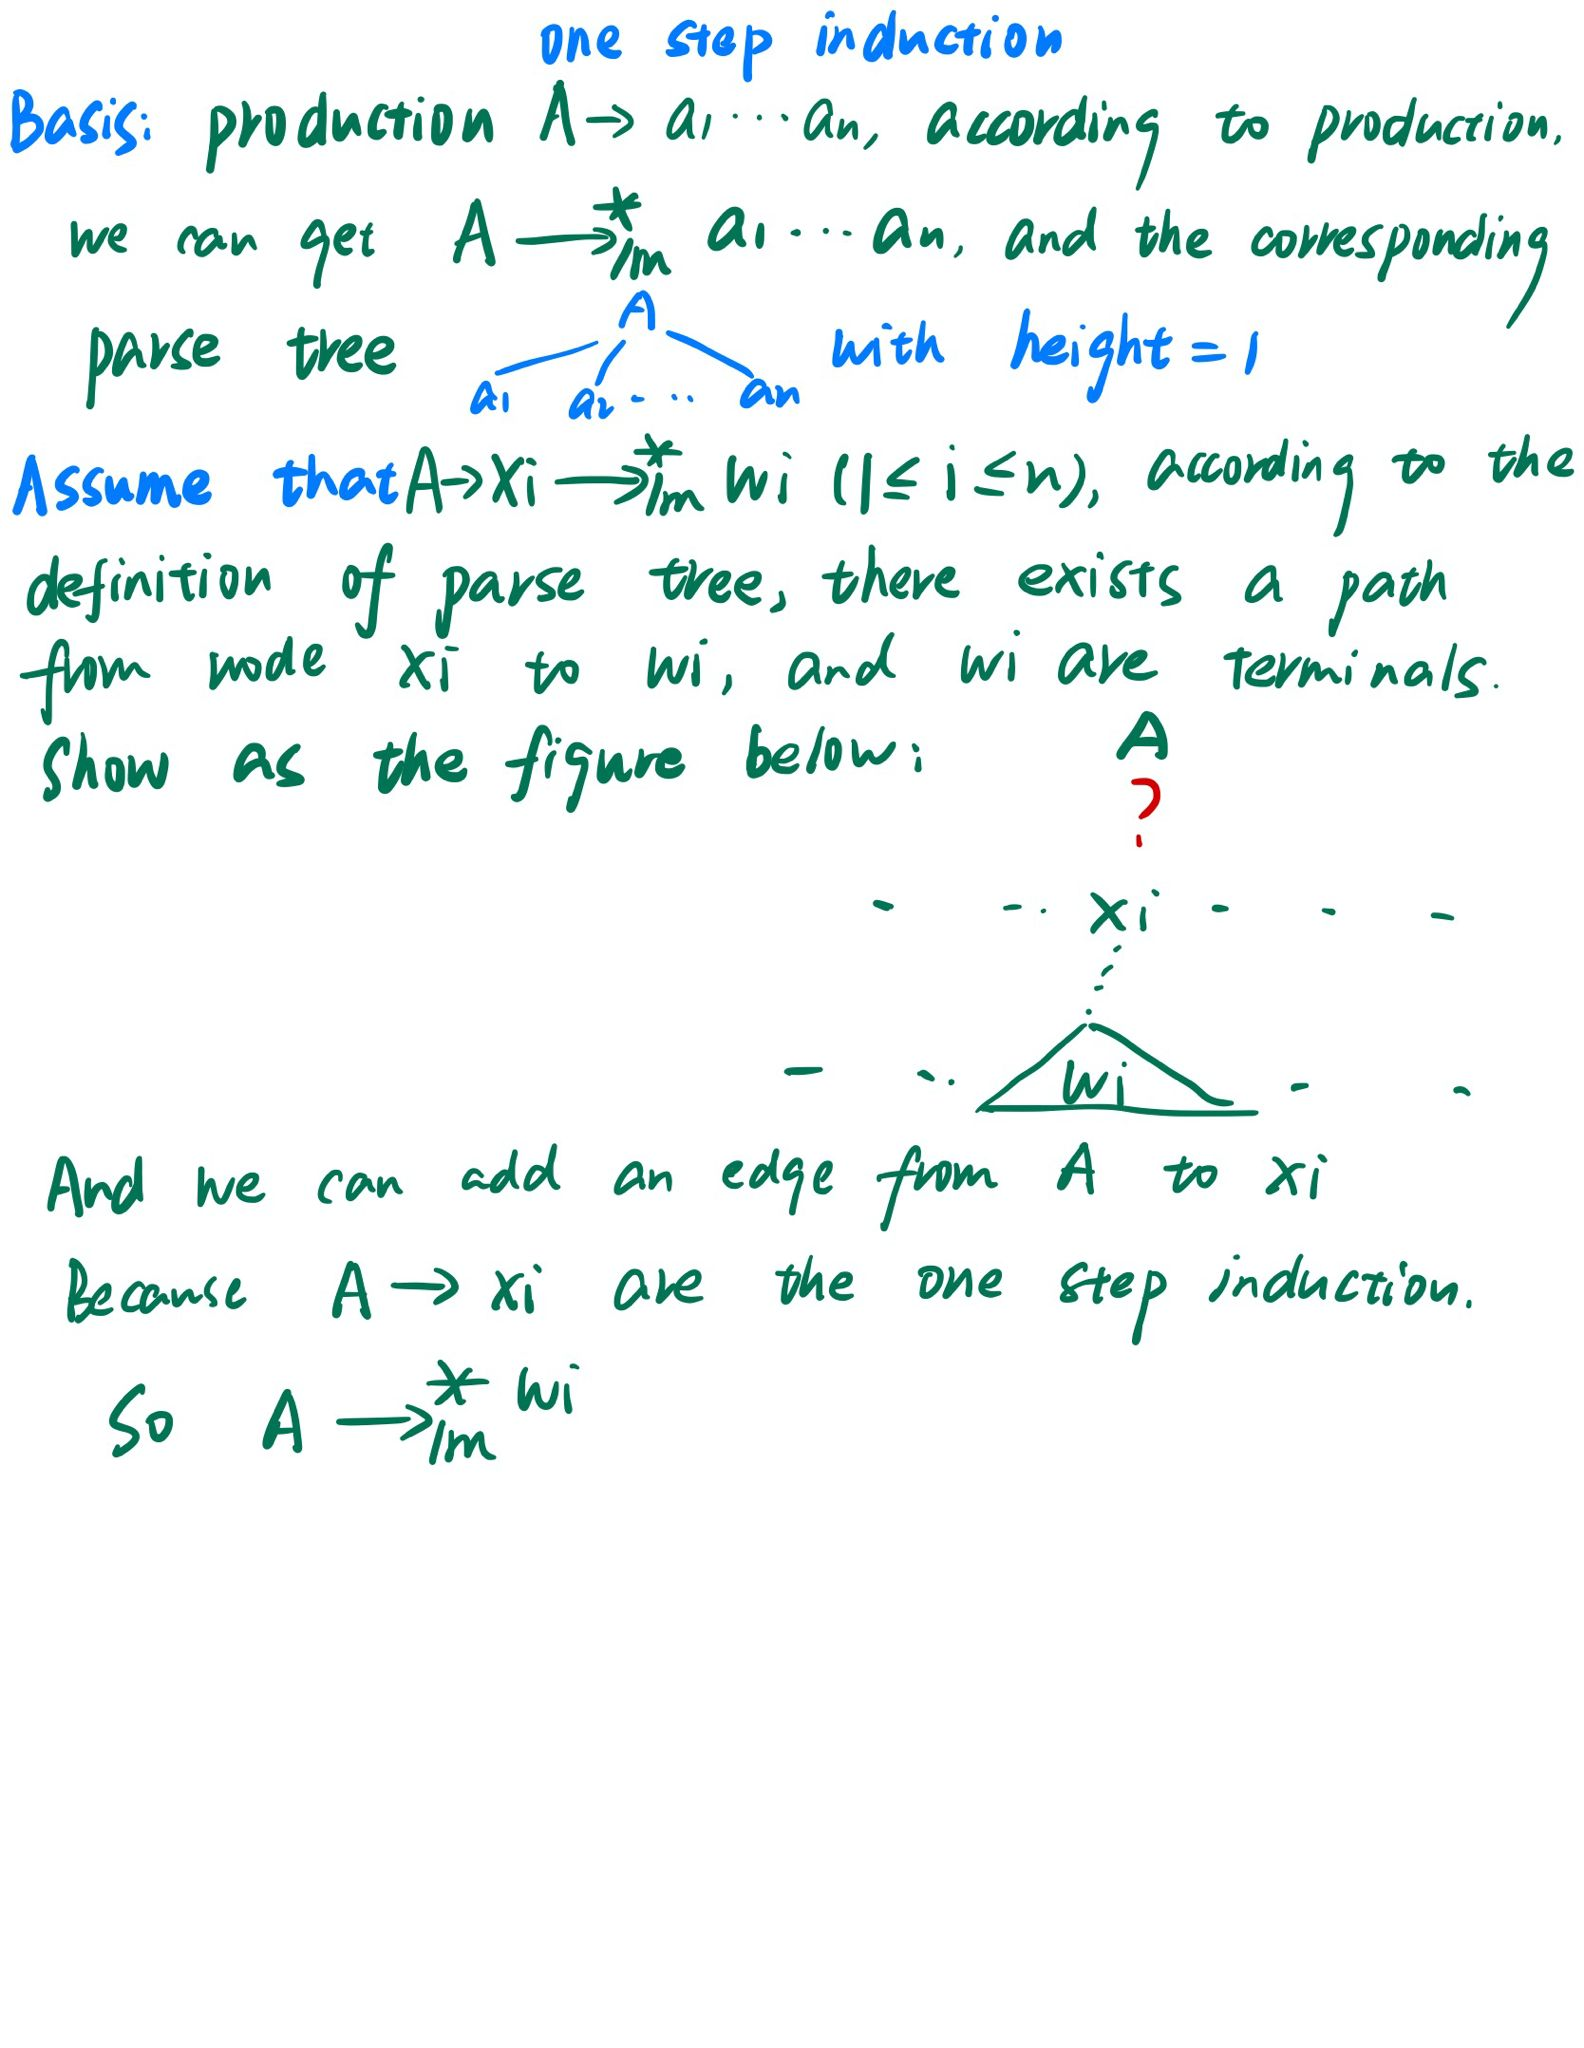 one step induction
Basis: production A → a1 ··· an, according to production.
we can get A →*lm a1 ··· an, and the corresponding
parse tree A with height = 1
a1 a2 ··· an
Assume that A → Xi →*lm wi (1 ≤ i ≤ n), according to the
definition of parse tree, there exists a path
from node xi to wi, and wi are terminals.
Show as the figure below: A
?
- -· xi - - -
wi
And we can add an edge from A to xi
Because A → xi are the one step induction.
So A →*lm wi